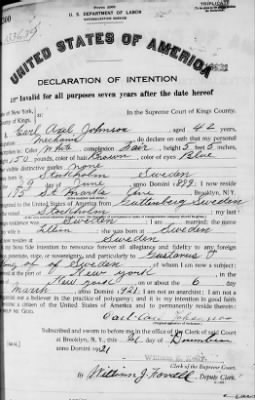 TRIPLICATE
U. S. DEPARTMENT OF LABOR
NATURALIZATION SERVICE
UNITED STATES OF AMERICA
DECLARATION OF INTENTION
Invalid for all purposes seven years after the date hereof
of New York,
In the Supreme Court of Kings County.
of Kings,
I, Carl Axel Johnson, aged 42 years,
occupation do declare on oath that my personal
description is: Color White, complexion Fair, height 5 feet 5 inches,
150 pounds, color of hair Brown, color of eyes Blue
visible distinctive marks none
Stockholm Sweden
9 day of June, anno Domini; I now reside
175 St Marks Ave Brooklyn, N.Y.
emigrated to the United States of America from Guttenberg Sweden
; my last
Stockholm
residence was Sweden; I am married; the name
wife is Ellen; she was born at Sweden
now reside at Sweden
my bona fide intention to renounce forever all allegiance and fidelity to any foreign
potentate, state, or sovereignty, and particularly to Gustavus V
King of Sweden, of whom I am now a subject;
arrived at the port of New York, in the
New York on or about the 6 day
March, anno Domini; I am not an anarchist; I am not a
polygamist nor a believer in the practice of polygamy; and it is my intention in good faith
to become a citizen of the United States of America and to permanently reside therein:
HELP ME GOD.
Subscribed and sworn to before me in the office of the Clerk of said Court
at Brooklyn, N. Y., this day of December
anno Domini 1921
Clerk of the Supreme Court.
By William J., Deputy Clerk.